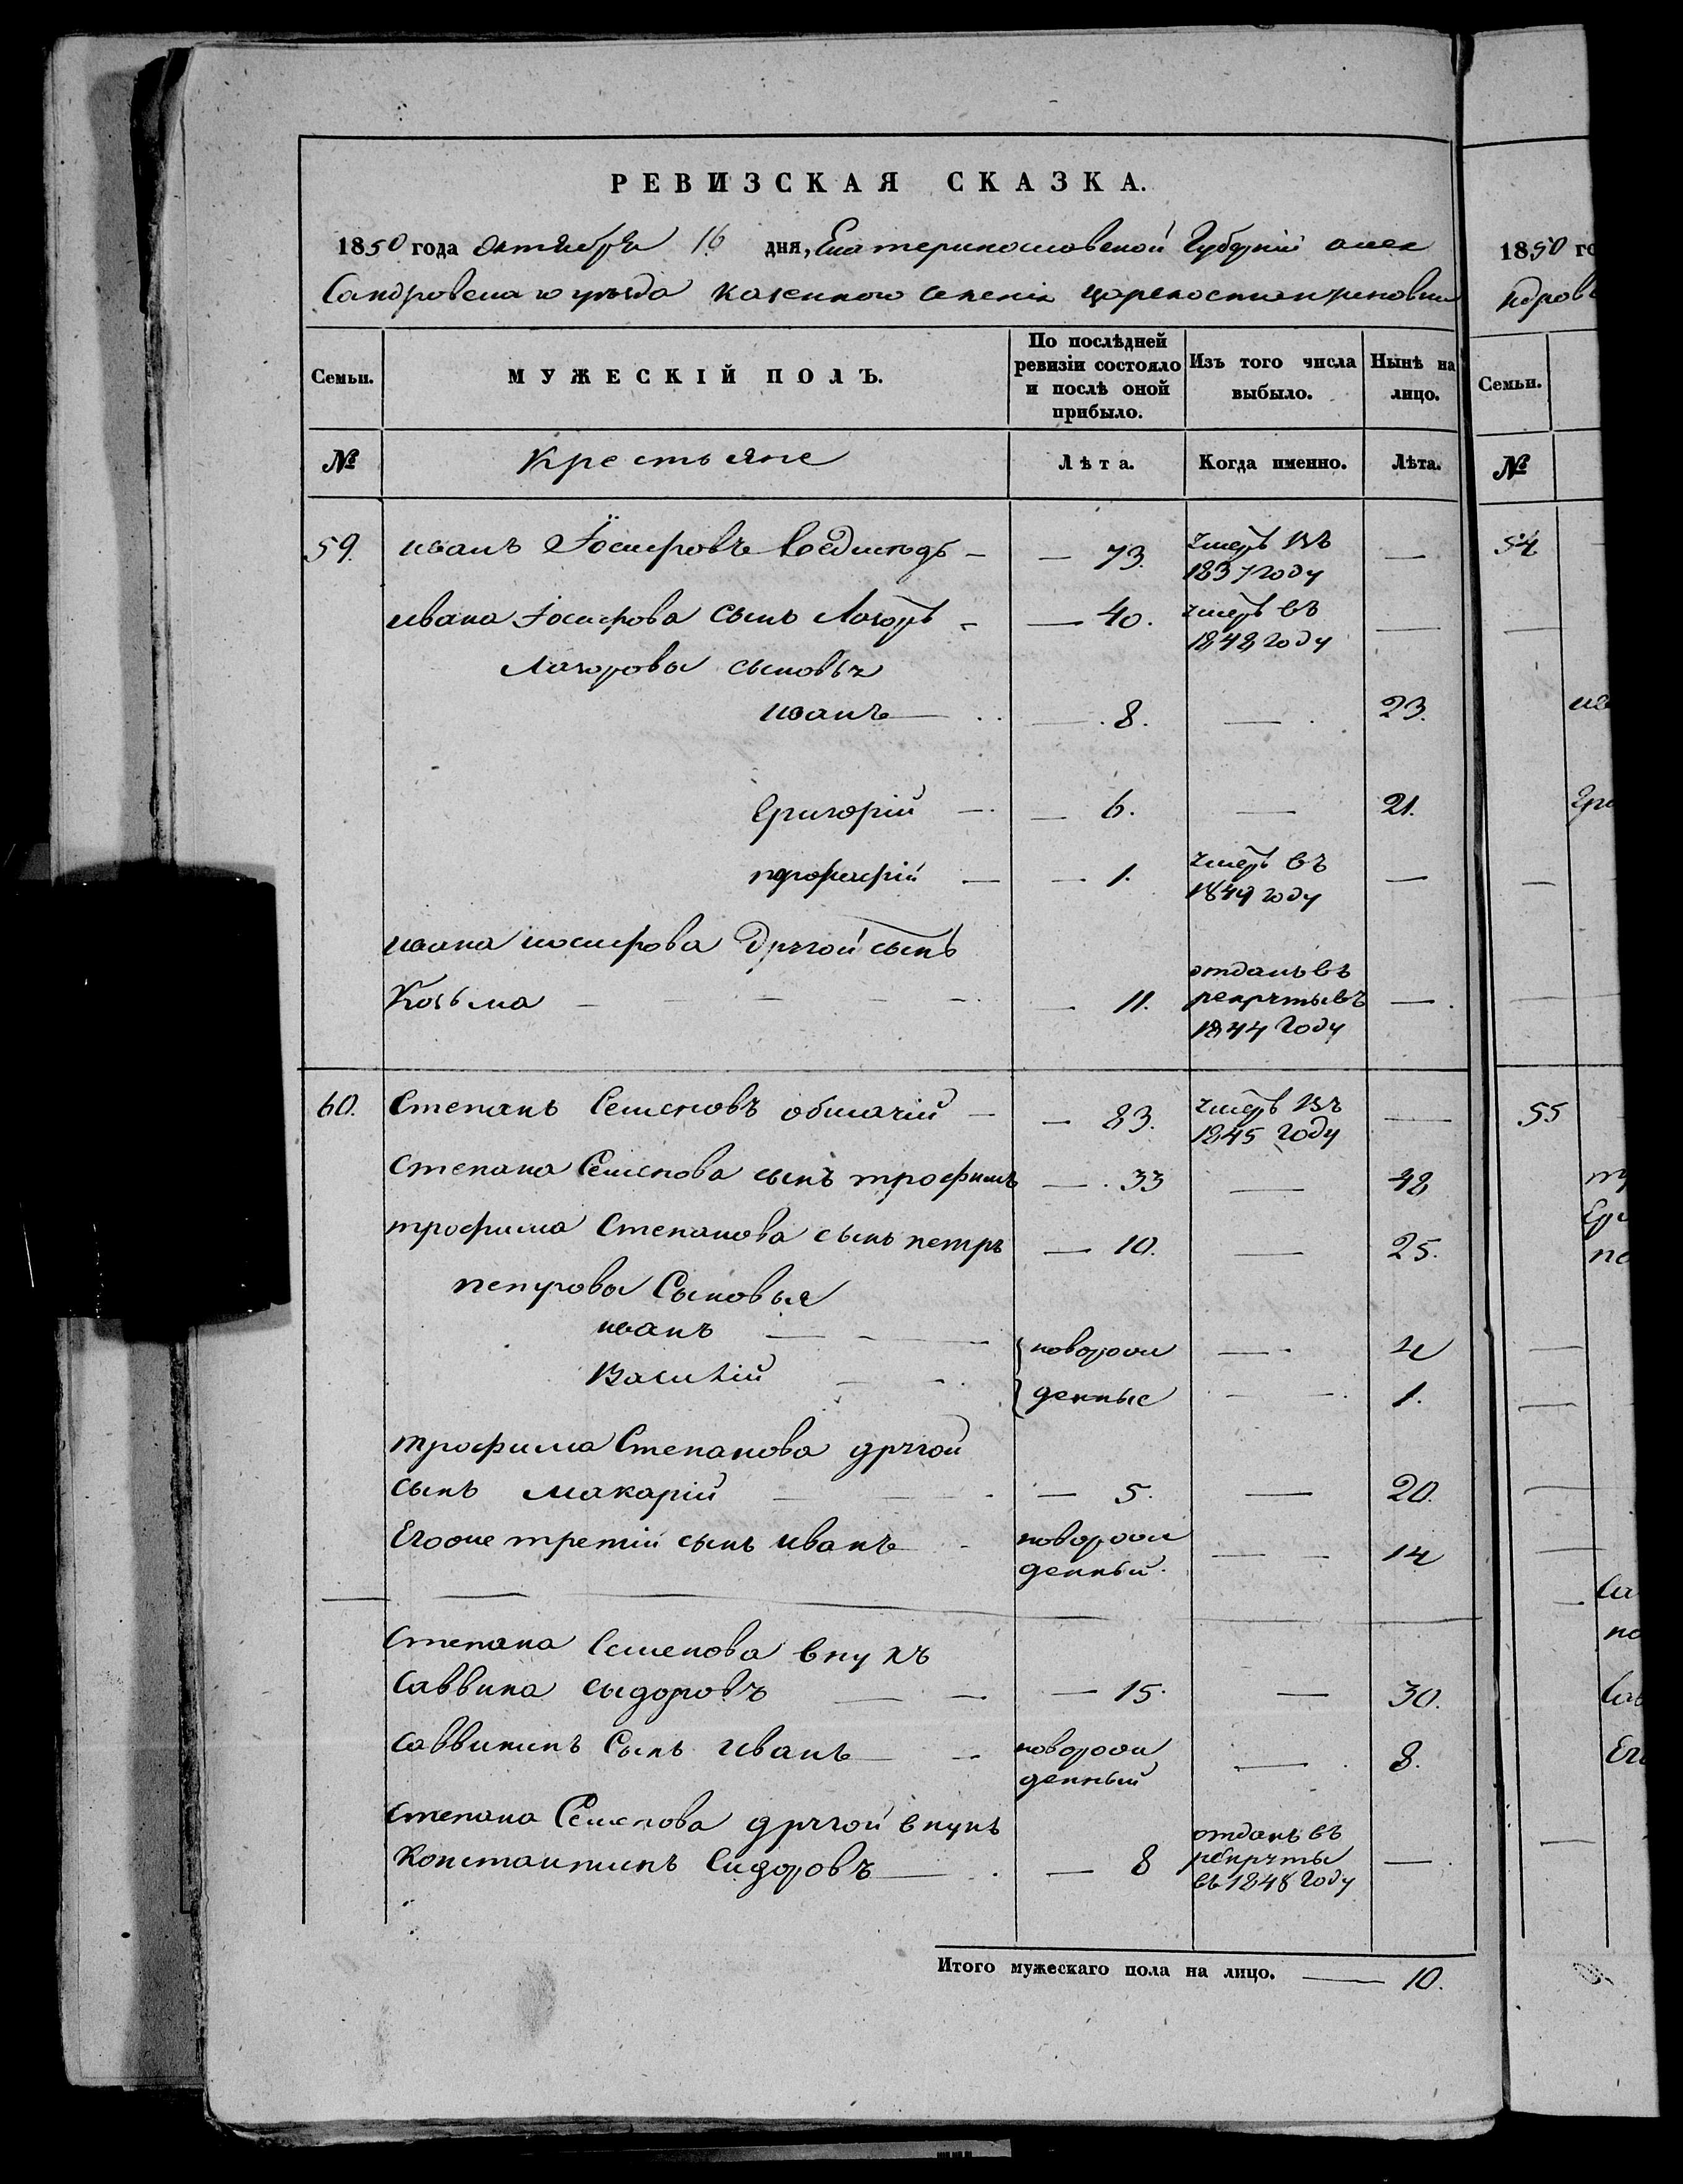 РЕВИЗСКАЯ СКАЗКА.
1850 года октября 16 дня, Екатеринославской Губерніи алек
Сандровскаго уѣзда казеннаго селенія
Семьи.
МУЖЕСКІЙ ПОЛЪ.
По послѣдней ревизіи состояло и послѣ оной прибыло.
Изъ того числа выбыло.
Нынѣ на лицо.
№
Крестьяне
Лѣта.
Когда именно.
Лѣта.
59. иванъ Іосифовъ — 73. умеръ въ 1837 году —
ивана Іосифова сынъ Лазарь — 40. умеръ въ 1848 году —
Лазаровы сыновья
иванъ — 8. — 23.
Григорій — 6. — 21.
— 1. умеръ въ 1849 году —
ивана иосифова другой сынъ
Козьма — 11. отданъ въ рекруты въ 1844 году —
60. Степанъ Семеновъ — 83. умеръ въ 1845 году —
Степана Семенова сынъ трофимъ — 33 — 48
трофима Степанова сынъ петръ — 10. — 25.
петровы Сыновья
иванъ — { новорож — 4
Василій — { денные — 1.
трофима Степанова другой
сынъ макарій — 5. — 20.
Егоже третій сынъ иванъ — новорож денный — 14
Степана Семенова внукъ
саввина сыдоровъ — 15. — 30.
саввининъ Сынъ иванъ — новорож денный — 8.
Степана Семенова другой внукъ
Константинъ Сидоровъ — 8 отданъ въ рекруты въ 1848 году —
Итого мужескаго пола на лицо. — 10.
1850 го
ндровс
Семьи.
№
54
55